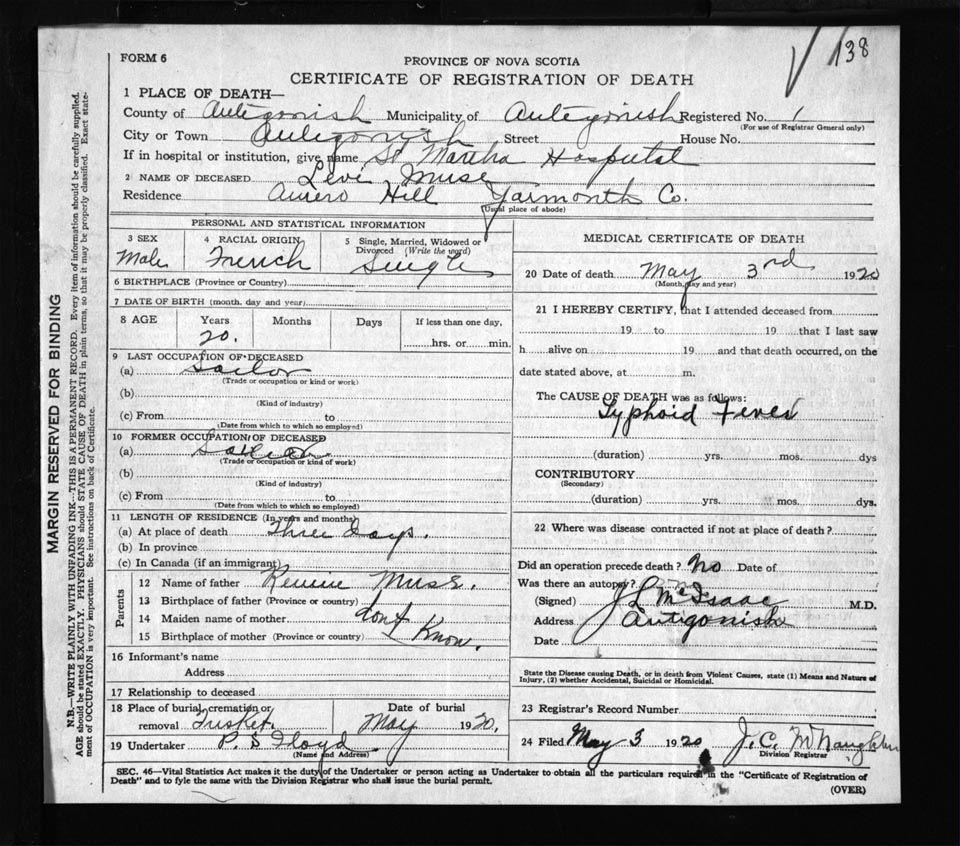 138
FORM 6
PROVINCE OF NOVA SCOTIA
CERTIFICATE OF REGISTRATION OF DEATH
1 PLACE OF DEATH—
County of Antigonish Municipality of Antigonish Registered No. 1
(For use of Registrar General only)
City or Town Antigonish Street House No.
If in hospital or institution, give name St Martha Hospital
2 NAME OF DECEASED Levi Muse
Residence Amero Hill Yarmouth Co.
(Usual place of abode)
PERSONAL AND STATISTICAL INFORMATION
3 SEX Male
4 RACIAL ORIGIN French
5 Single, Married, Widowed or Divorced (Write the word) Single
6 BIRTHPLACE (Province or Country)
7 DATE OF BIRTH (month, day and year)
8 AGE Years Months Days If less than one day,
20. hrs. or min.
9 LAST OCCUPATION OF DECEASED
(a) Sailor
(Trade or occupation or kind or work)
(b)
(Kind of industry)
(c) From to
(Date from which to which so employed)
10 FORMER OCCUPATION OF DECEASED
(a)
(Trade or occupation or kind of work)
(b)
(Kind of industry)
(c) From to
(Date from which to which so employed)
11 LENGTH OF RESIDENCE (In years and months)
(a) At place of death Three Days.
(b) In province
(c) In Canada (if an immigrant)
Parents
12 Name of father Muse.
13 Birthplace of father (Province or country)
14 Maiden name of mother dont
15 Birthplace of mother (Province or country) Know.
16 Informant's name
Address
17 Relationship to deceased
18 Place of burial, cremation or removal Tusket. Date of burial May 1920.
19 Undertaker P. S Floyd
(Name and Address)
MEDICAL CERTIFICATE OF DEATH
20 Date of death May 3rd 1920
(Month, day and year)
21 I HEREBY CERTIFY, that I attended deceased from
19 to 19 that I last saw
h alive on 19 and that death occurred, on the
date stated above, at m.
The CAUSE OF DEATH was as follows:
Typhoid Fever
(duration) yrs. mos. dys
CONTRIBUTORY
(Secondary)
(duration) yrs. mos. dys.
22 Where was disease contracted if not at place of death?
Did an operation precede death? No Date of
Was there an autopsy?
(Signed) McIsaac M.D.
Address Antigonish
Date
State the Disease causing Death, or in death from Violent Causes, state (1) Means and Nature of
Injury, (2) whether Accidental, Suicidal or Homicidal.
23 Registrar's Record Number
24 Filed May 3 1920 J. C. McNaughton
Division Registrar
SEC. 46—Vital Statistics Act makes it the duty of the Undertaker or person acting as Undertaker to obtain all the particulars required in the "Certificate of Registration of
Death" and to fyle the same with the Division Registrar who shall issue the burial permit.
(OVER)
MARGIN RESERVED FOR BINDING
N.B.—WRITE PLAINLY WITH UNFADING INK—THIS IS A PERMANENT RECORD. Every item of information should be carefully supplied.
AGE should be stated EXACTLY. PHYSICIANS should STATE CAUSE OF DEATH in plain terms, so that it may be properly classified. Exact state-
ment of OCCUPATION is very important. See instructions on back of Certificate.